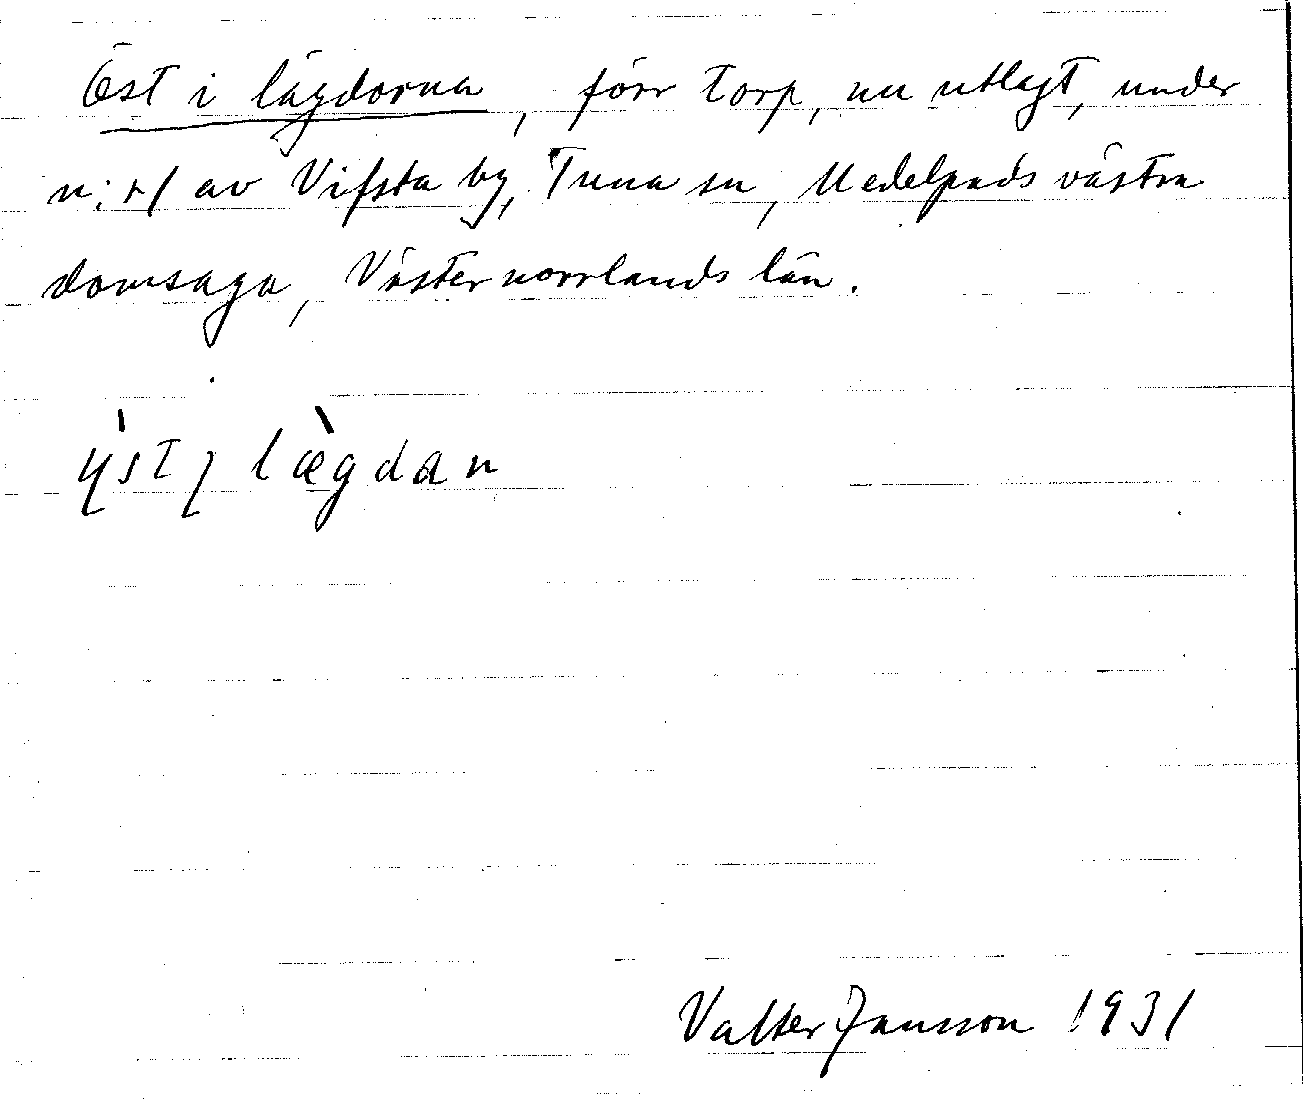 Öst i lägdorna, förr torp, nu utlagt, under
n:r 1 av Vifsta by, Tuna sn, Medelpads västra
domsaga, Västernorrlands län.
ýst ı lægdan
Valter Jansson 1931